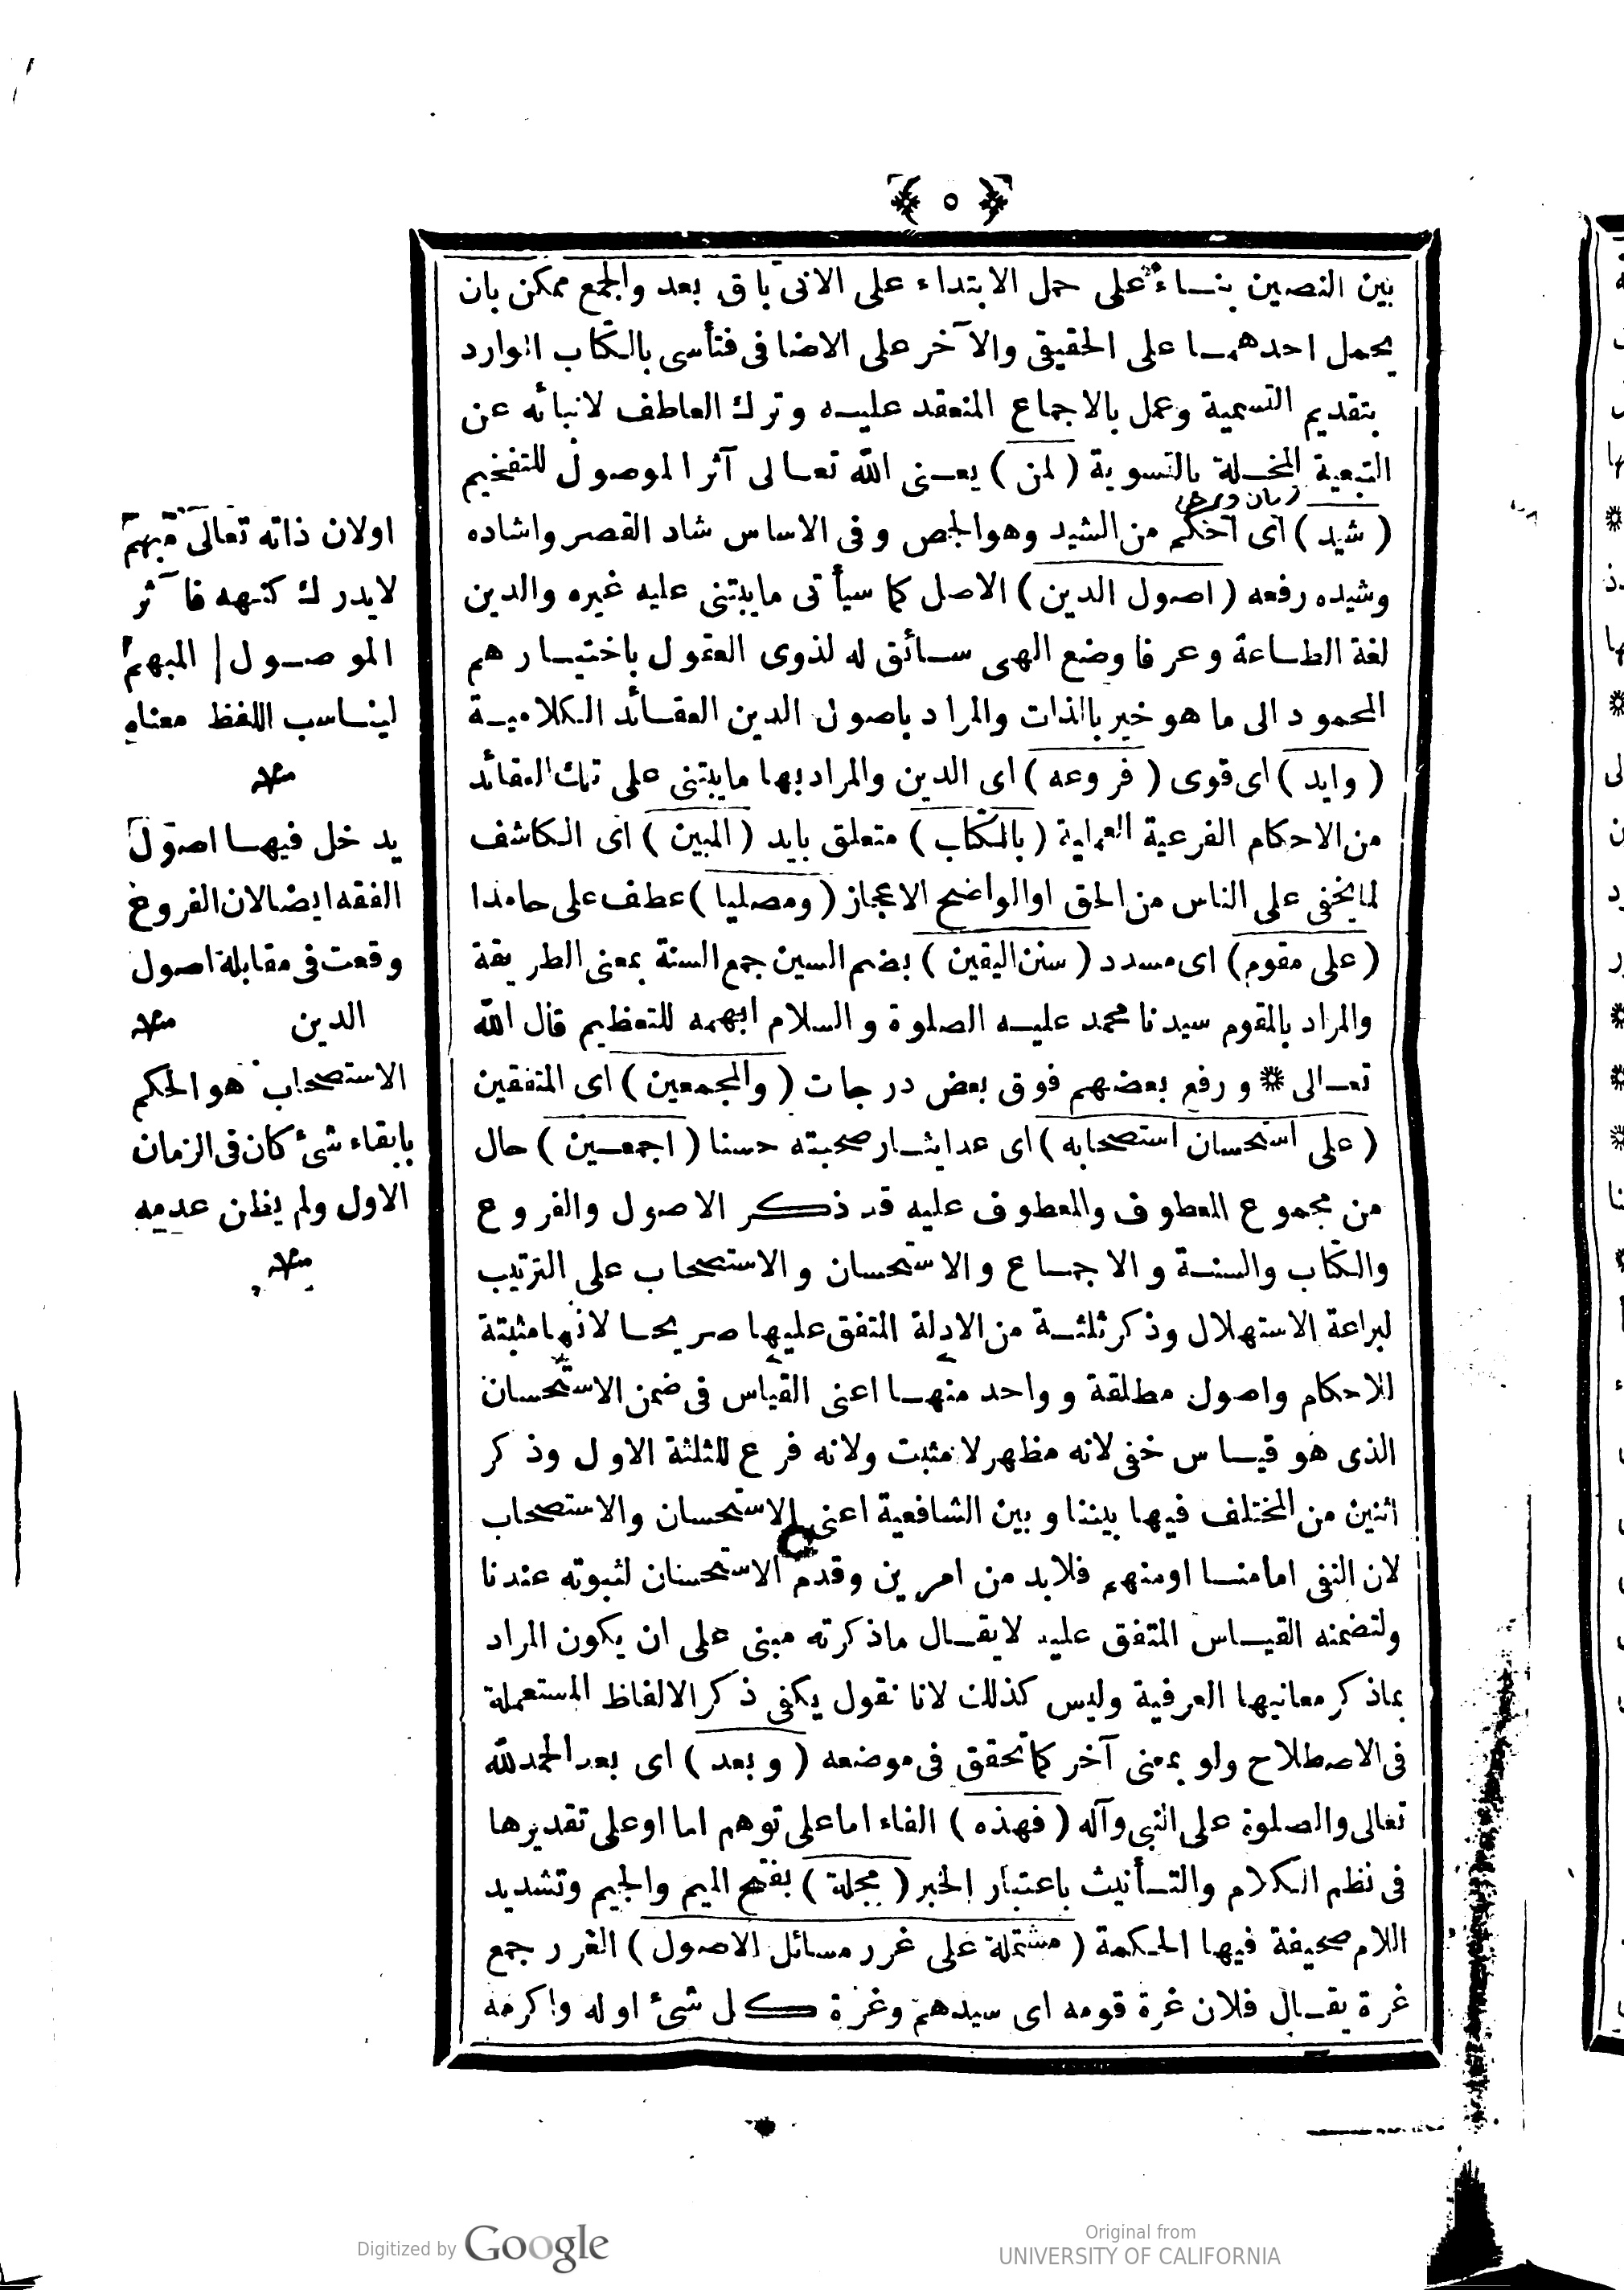 ﴿ ٥ ﴾
بين النصين بنـاء على حمل الابتداء على الآنى باق بعد والجمع ممكن بان
يحمل احدهمـا على الحقيقى والآخر على الاضافى فتأسى بالكتاب الوارد
بتقديم التسمية وعمل بالاجماع المنعقد عليـه وترك العاطف لانبائه عن
التبعية المخـلة بالتسوية ( لمن ) يعـنى الله تعـالى آثر الموصول للتفخيم
( شيد ) اى احكم من الشيد وهو الجص وفى الاساس شاد القصر واشاده
وشيده رفعه ( اصول الدين ) الاصل كما سيأتى مايبتنى عليه غيره والدين
لغة الطـاعة وعرفا وضع الهى سـائق له لذوى العقول باختيـارهم
المحمود الى ما هو خير بالذات والمراد باصول الدين العقـائد الكلاميـة
( وايد ) اى قوى ( فروعه ) اى الدين والمراد بها مايبتنى على تلك العقائد
من الاحكام الفرعية العملية ( بالكتاب ) متعلق بايد ( المبين ) اى الكاشف
لما يخفى على الناس من الحق او الواضح الاعجاز ( ومصليا ) عطف على حامدا
( على مقوم ) اى مسدد ( سنن اليقين ) بضم السين جمع السنة بمعنى الطريقة
والمراد بالمقوم سيدنا محمد عليـه الصلوة والسلام ابهمه للتعظيم قال الله
تعـالى * ورفع بعضهم فوق بعض درجات ( والمجمعين ) اى المتفقين
( على استحسان استصحابه ) اى عد ايثـار صحبته حسنا ( اجمعـين ) حال
من مجموع المعطوف والمعطوف عليه قد ذكر الاصول والفروع
والكتاب والسنـة والاجمـاع والاستحسان والاستصحاب على الترتيب
لبراعة الاستهلال وذكر ثلثـة من الادلة المتفق عليها صريحـا لانها مثبتة
للاحكام واصول مطلقة وواحد منهـا اعنى القياس فى ضمن الاستحسان
الذى هو قيـاس خفى لانه مظهر لا مثبت ولانه فرع للثلثة الاول وذكر
اثنين من المختلف فيها بيننا وبين الشافعية اعنى الاستحسان والاستصحاب
لان النفى اما منـا او منهم فلابد من امرين وقدم الاستحسان لثبوته عندنا
ولتضمنه القيـاس المتفق عليه لايقـال ماذكرته مبنى على ان يكون المراد
بماذكر معانيها العرفية وليس كذلك لانا نقول يكفى ذكر الالفاظ المستعملة
فى الاصطلاح ولو بمعنى آخر كما تحقق فى موضعه ( وبعد ) اى بعد الحمد لله
تعالى والصلوة على النبى وآله ( فهذه ) الفاء اما على توهم اما او على تقديرها
فى نظم الكلام والتـأنيث باعتبار الخبر ( مجلة ) بفتح الميم والجيم وتشديد
اللام صحيفة فيها الحكمة ( مشتملة على غرر مسائل الاصول ) الغرر جمع
غرة يقـال فلان غرة قومه اى سيدهم وغرة كل شئ اوله واكرمه
اولان ذاته تعالى مبهم
لايدرك كنهه فآثر
الموصـول المبهم
لينـاسب اللفظ معناه
منه
يدخل فيهـا اصول
الفقه ايضا لان الفروع
وقعت فى مقابلة اصول
الدين منه
الاستصحاب هو الحكم
بابقاء شئ كان فى الزمان
الاول ولم يظن عدمه
منه
Digitized by Google
Original from
UNIVERSITY OF CALIFORNIA